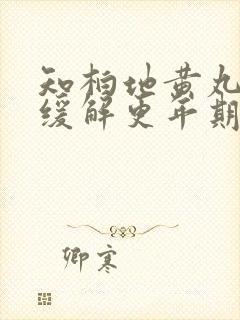 知柏地黄丸
缓解更年期
卿寒